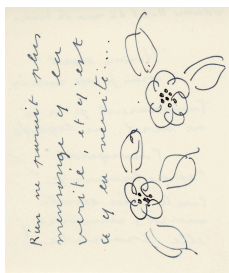 Rien ne parait plus
mensonge q la
verité, et c'est
ce q la verité...